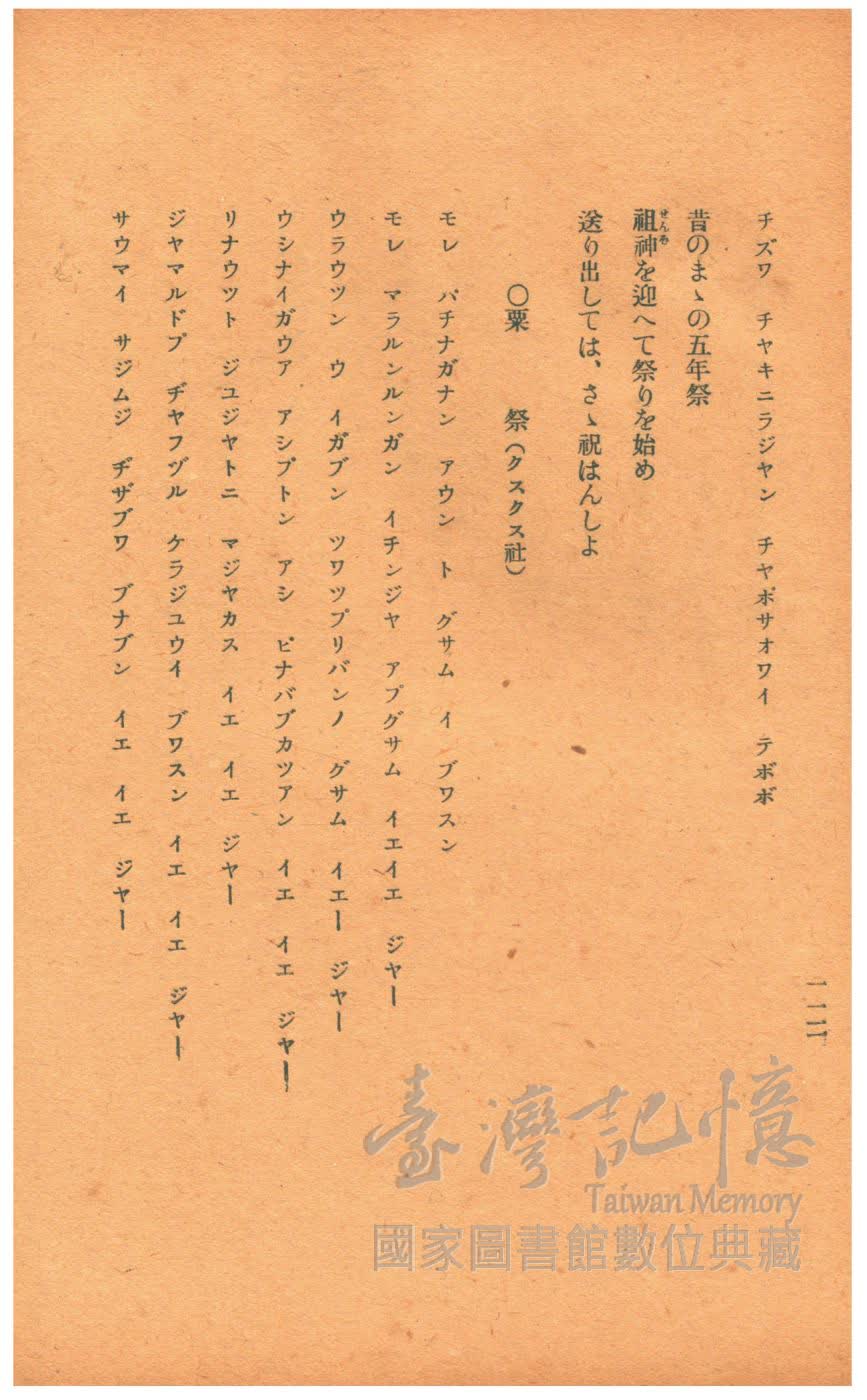 チズワ　チヤキニラジヤン　チヤポサオワイ　テボボ
昔のまゝの五年祭
祖神を迎へて祭りを始め
せんぞ
送り出しては、さゝ祝はんしよ
〇粟　祭（クスクス社）
モレ　パチナガナン　アウン　ト　グサム　イ　ブワスン
モレ　マラルンルンガン　イチンジヤ　アプグサム　イエイエ　ジヤー
ウラウツン　ウ　イガブン　ツワツプリバンノ　グサム　イエー　ジヤー
ウシナイガウア　アシプトン　アシ　ピナバブカツアン　イエ　イエ　ジヤー
リナウツト　ジユジヤトニ　マジヤカス　イエ　イエ　ジヤー
ジヤマルドプ　ヂヤフヅル　ケラジユウイ　ブワスン　イエ　イエ　ジヤー
サウマイ　サジムジ　ヂザブワ　ブナブン　イエ　イエ　ジヤー
一一二
臺灣記憶
Taiwan Memory
國家圖書館數位典藏